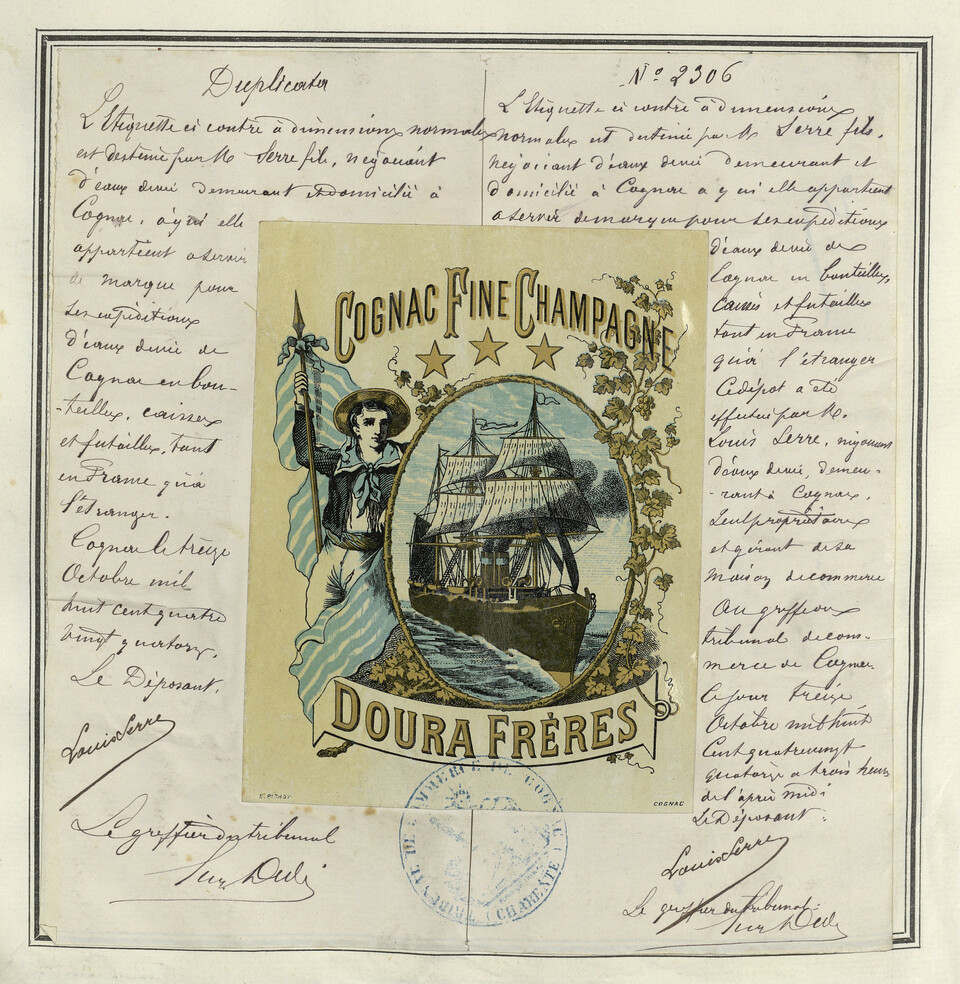 Duplicata
L'Etiquette ci contre à dimensions normales
est destiné par M Serre fils, négociant
d'eaux de vie demeurant et domicilié à
Cognac, à qui elle
appartient a servir
de marque pour
ses expéditions
d'eaux de vie de
Cognac en bou-
-teilles, caisses
et futailles, tant
en France qu'à
l'étranger.
Cognac le treize
Octobre mil
huit cent quatre
vingt quatorze.
Le Déposant.
Louis Serre
Le greffier du tribunal
N° 2306
L'Etiquette ci contre à dimensions
normales est destiné par M Serre fils,
négociant d'eaux de vie demeurant et
domicilié à Cognac a qui elle appartient
a servir de marque pour ses expéditions
d'eaux de vie de
Cognac en bouteilles,
caisses et futailles
tant en France
qu'à l'étranger
Ce dépot a été
effectué par M.
Louis Serre, négociant
d'eaux de vie, demeu-
-rant à Cognac,
seul propriétaire
et gérant de sa
maison de commerce
Au greffe du
tribunal de com-
merce de Cognac
Ce jour treize
Octobre mil huit
cent quatre vingt
quatorze a trois heures
de l'après midi
Le Déposant.
Louis Serre
Le greffier du tribunal
COGNAC FINE CHAMPAGNE
DOURA FRÈRES
COGNAC
TRIBUNAL DE COMMERCE DE COGNAC
(CHARENTE)